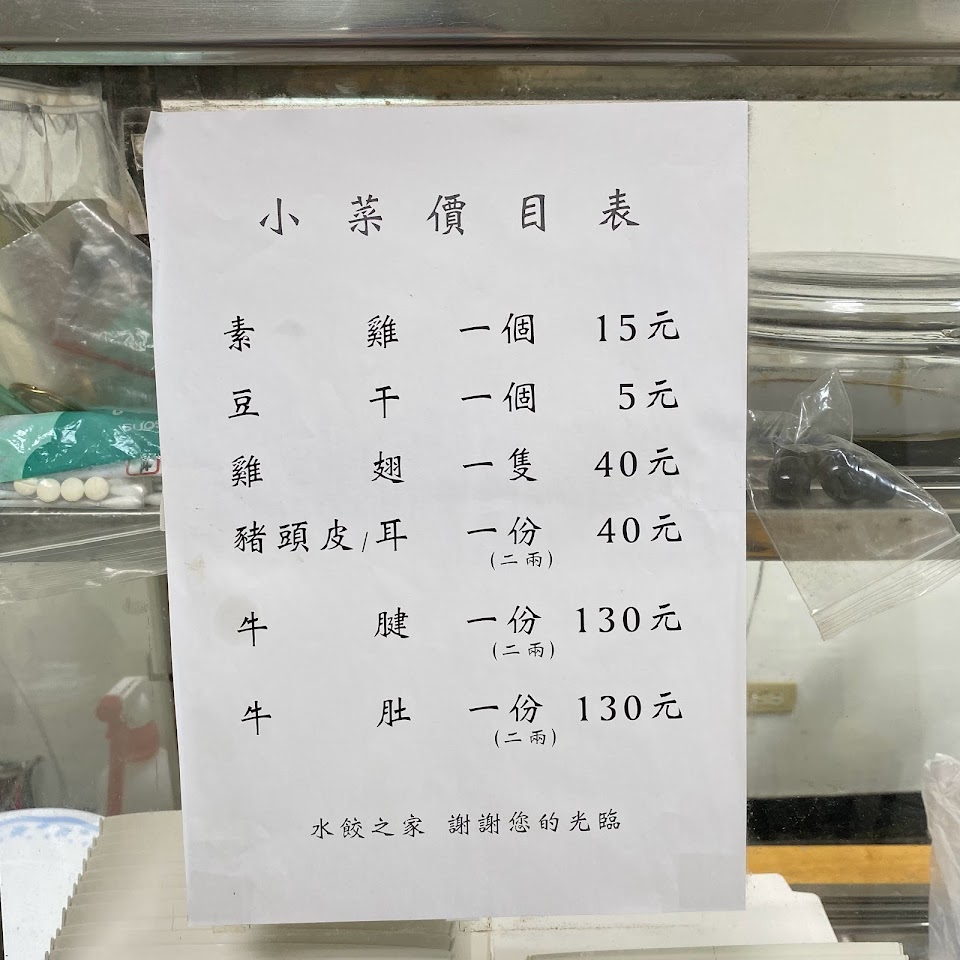 小菜價目表
素雞 一個 15元
豆干 一個 5元
雞翅 一隻 40元
豬頭皮/耳 一份 40元
(二兩)
牛腱 一份 130元
(二兩)
牛肚 一份 130元
(二兩)
水餃之家 謝謝您的光臨